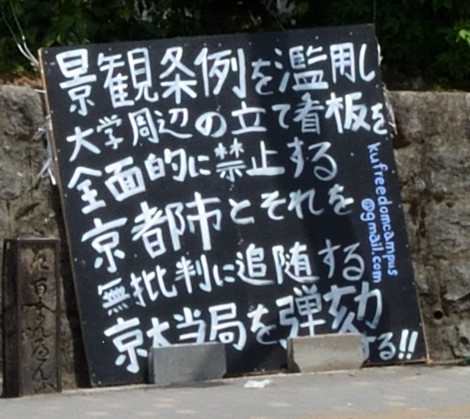 景観条例を濫用し
大学周辺の立て看板を
全面的に禁止する
京都市とそれを
無批判に追随する
京大当局を弾劾
する!!
kufreedomcampus
@gmail.com